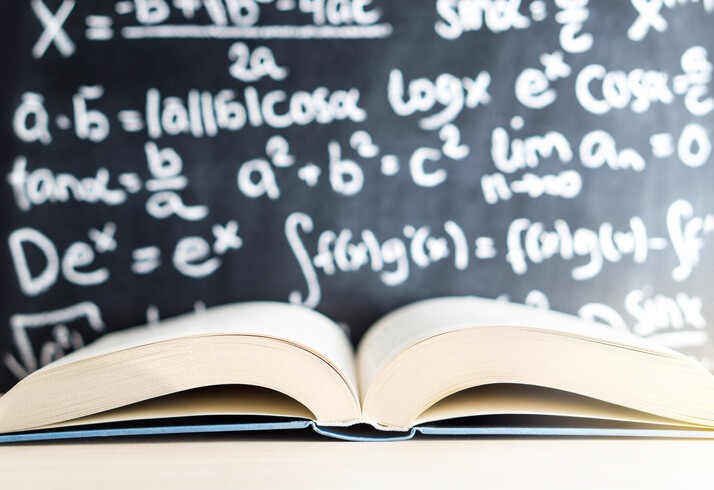 X = -b+√b²-4ac
2a
sinα = a/c
ā · b̄ = |ā||b̄|cosα logx eˣ cosα = a/c
tanα = b/a a² + b² = c² lim aₙ = 0
n→∞
Deˣ = eˣ ∫f(x)g'(x) = f(x)g(x) - ∫f'
sinx